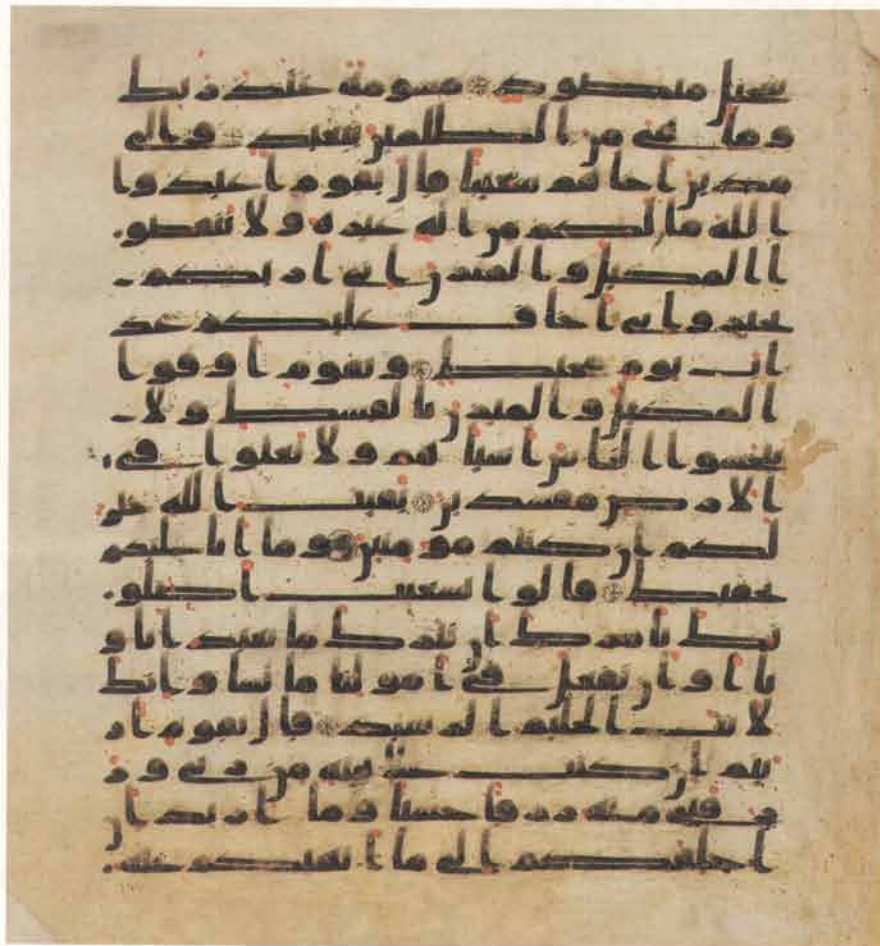 سجيل منضود ۝ مسومة عند ربك
وما هي من الظلمين ببعيد ۝ والى
مدين اخاهم شعيبا قال يقوم اعبدوا
الله ما لكم من اله غيره ولا تنقصو
ا المكيل والميزن اني اريكم
بخير واني اخاف عليكم عذ
اب يوم محيط ۝ ويقوم اوفوا
المكيل والميزن بالقسط ولا
تبخسوا الناس اشياهم ولا تعثوا في
الارض مفسدين ۝ بقيت الله خير
لكم ان كنتم مومنين ۝ وما انا عليكم
بحفيظ ۝ قالوا يشعيب اصلو
تك تامرك ان نترك ما يعبد اباو
نا او ان نفعل في امولنا ما نشا وانك
لانت الحليم الرشيد ۝ قال يقوم ار
يتم ان كنت على بينة من ربي ور
زقني منه رزقا حسنا وما اريد ان
اخلفكم الى ما انهيكم عنه